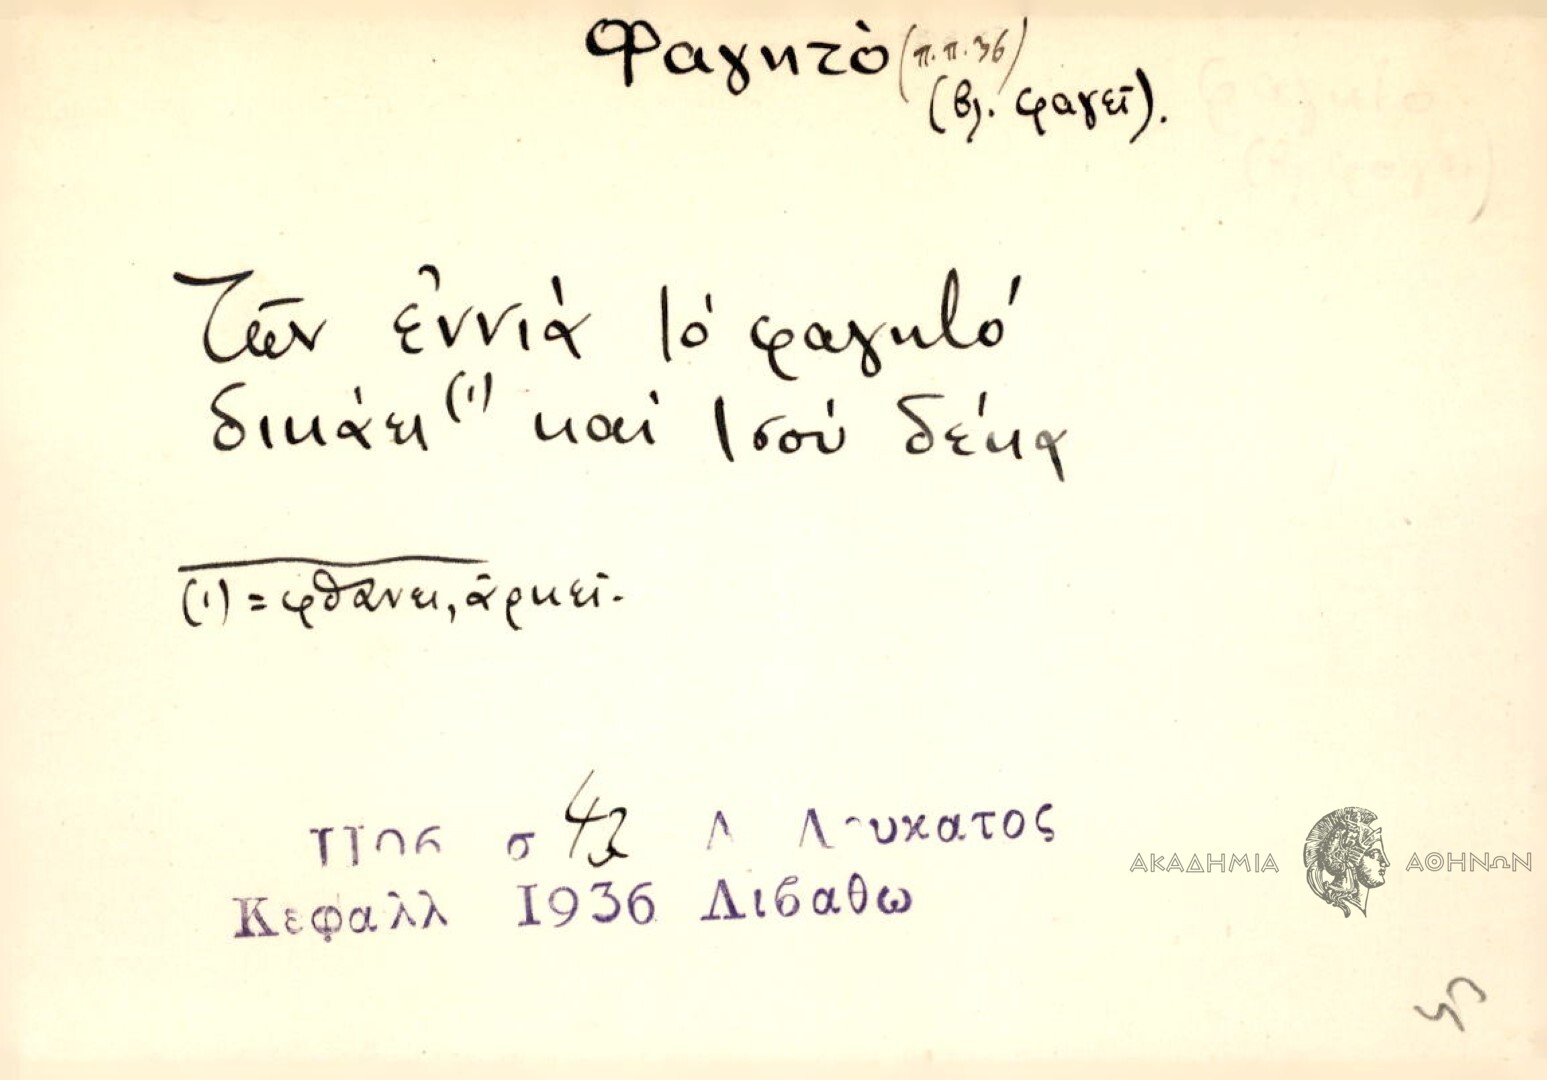 Φαγητὸ (π.π. 36)
(βλ. φαγεῖ).
Τῶν ἐννιὰ τὸ φαγητό
δικάει (1) καὶ τσοὺ δέκα
(1) = φθάνει, ἀρκεῖ.
σ 42 Δ Λουκατος
Κεφαλλ 1936 Λιβαθω
ΑΚΑΔΗΜΙΑ ΑΘΗΝΩΝ